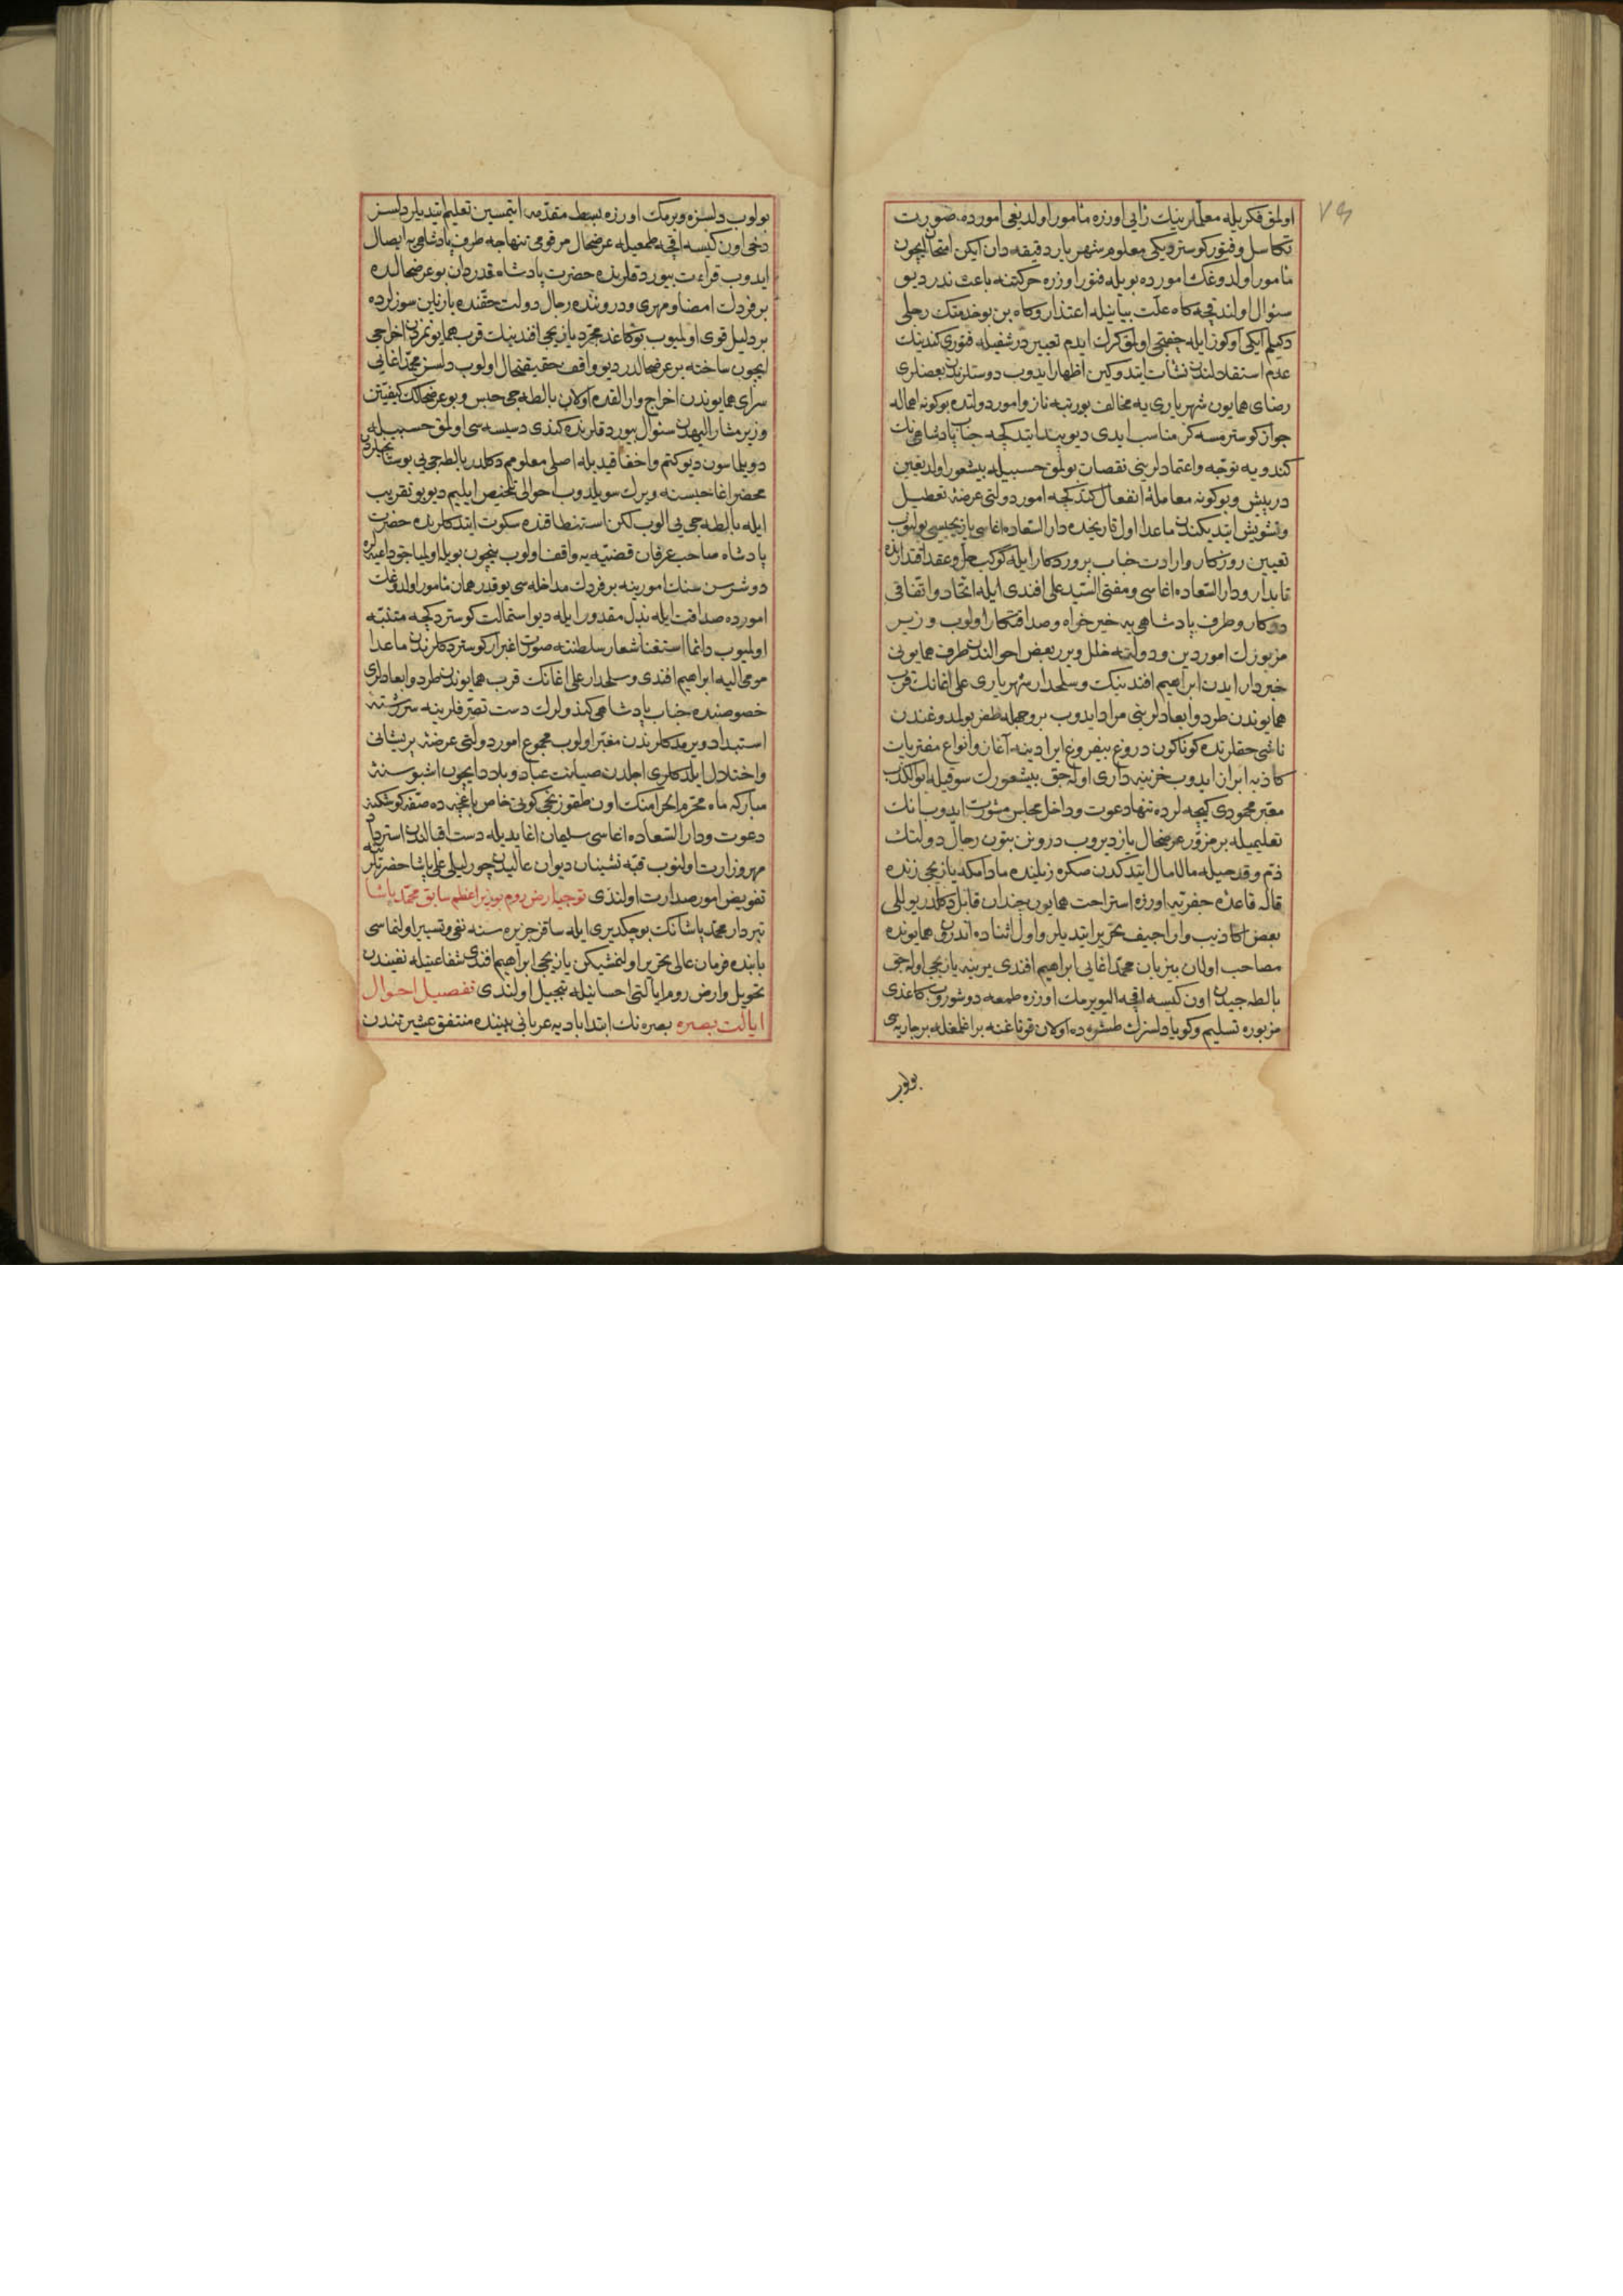 ٧٩
اولمق فكريله معلملرينك رأيى اوزره مأمور اولديغى اموره صورت
تكاسل و فتور كوستردیكى معلوم شهريار دقيقه دان ايكن امتحان ايچون
مأمور اولدوغك اموره بويله فتور اوزره حركتنه باعث ندر ديو
سئوال اولندقچه كاه علت بيانيله اعتذار و كاه بن بو خدمتك رجلى
دكيلم ايكى اوكوز ايله چفتجى اولمق كرك ايدم تعبير درشتيله فتورى كندينك
عدم استقلالندن نشأت ايتدوكين اظهار ايدوب دوستلرندن بعضلرى
رضاى همايون شهريارى يه مخالف بو رتبه ناز و امور دولتده بوكونه اهماله
جواز كوسترمسه كز مناسب ايدى ديو پند ايتدكجه جناب پادشاهينك
كندويه توجه و اعتمادلرينى نقصان بولمق حسبيله بيشعور اولديغين
درپيش و بوكونه معامله انفعال كتدكجه امور دولتى عرضه تعطيل
و تشويش ايتديكندن ماعدا اول تاريخده دار السعاده اغاسى يازيجيسى بولنوب
تعيين روزكار و ارادت جناب پروردكار ايله كوكب حل و عقد اقتدارنده
تابدار و دار السعاده اغاسى و مفتى السيد على افندى ايله اتحاد و اتفاقى
دركار و طرف پادشاهى يه خير خواه و صداقتكار اولوب وزير
مزبورك امور دين و دولته خلل ويرر بعض احوالندن طرف همايونى
خبردار ايدن ابراهيم افندينك و سلحدار شهريارى على اغانك قرب
همايوندن طرد و ابعادلرينى مراد ايدوب بر وجهله ظفر بولمدوغندن
ناشى حقلرنده كوناكون دروغ بيفروغ ايرادينه آغاز و انواع مفتريات
كاذبه ابراز ايدوب خزينه دارى اوله جق بيشعورك سوقيله ابو الكذب
مقبر محمودى كيجه لرده تنها دعوت و داخل مجلس مشورت ايدوب انك
تعليميله بر مزور عرضحال يازديروب دروننى بتون رجال دولتك
ذم و قدحيله مالامال ايتدكدن صكره زيلينده مادامكه يازيجى زنده
قاله قاعده جفرتيه اوزره استراحت همايون چندان قابل دكلدر يوللى
بعض اكاذيب و اراجيف تحرير ايتديلر و اول اثناده اندرون همايونده
مصاحب اولان بيزبان محمد اغايى ابراهيم افندى يرينه يازيجى اوله جق
بالطه جيدن اون كيسه اقچه اليويرمك اوزره طمعه دوشوروب كاغدى
مزبوره تسليم و كويا دلسزك طشره ده اولان قوناغنه براغلمغله بر جاريه سى
بولوب
بولوب دلسزه ويرمك اوزره بسط مقدمه ايتمسين تعليم ايتديلر دلسز
دخى اون كيسه اقچه طمعيله عرضحال مرقومى تنهاجه طرف پادشاهى يه ايصال
ايدوب قراءت بيوردقلرنده حضرت پادشاه قدردان بو عرضحالده
بر فردك امضا و مهرى و دروننده رجال دولت حقنده يازيلن سوزلرده
بر دليل قوى اولميوب بو كاغد مجرد يازيجى افندينك قرب همايونمزدن اخراجى
ايچون ساخته بر عرضحالدر ديو واقف حقيقتحال اولوب دلسز محمد اغايى
سراى همايوندن اخراج و ارالقده اولان بالطه جى حبس و بو عرضحالك كيفيتن
وزير مشار اليهدن سئوال بيوردقلرنده كندى دسيسه سى اولمق حسبيله
دويلماسون ديو كتم و اخفا قيديله اصلى معلومم دكلدر بالطه جى يى بوستانجيلر
محضر اغا حبسنه ويرك سويلدوب احوالى تلخيص ايليم ديو بو تقريب
ايله بالطه جى يى الوب لكن استنطاقنده سكوت ايتدكلرنده حضرت
پادشاه صاحب عرفان قضيه يه واقف اولوب نيچون بويله اولمياجق داعيه لره
دوشرسن سنك امورينه بر فردك مداخله سى يوقدر همان مأمور اولدوغك
اموره صداقت ايله بذل مقدور ايله ديو استمالت كوستردكجه متنبه
اولميوب دائما استغنا شعار سلطنته صورت اغبرار كوستردكلرندن ماعدا
مومى اليه ابراهيم افندى و سلحدار على اغانك قرب همايوندن طرد و ابعادلرى
خصوصنده جناب پادشاهى كندولرك دست تصرفلرينه سررشته
استبداد ويرمدكلرندن مغبر اولوب مجموع امور دولتى عرضه پريشانى
و اختلال ايلدكلرى اجلدن صيانت عباد و بلاد ايچون اشبو سنه
مباركه ماه محرم الحرامنك اون طقوزنجى كونى خاص باغچه ده صفه كوشكنه
دعوت و دار السعاده اغاسى سليمان اغا يديله دست اقبالندن استرداد
مهر وزارت اولنوب قبه نشينان ديوان عاليدن چورليلى على پاشا حضرتلرينه
تفويض امور صدارت اولندى توجيه ارضروم بوزير اعظم سابق محمد پاشا
تبردار محمد پاشانك بوچكديرى ايله ساقز جزيره سنه نفى و تسيير اولنماسى
بابنده فرمان عالى تحرير اولنمشيكن يازيجى ابراهيم افندى شفاعتيله نفيندن
تحويل و ارضروم ايالتى احسانيله تبجيل اولندى تفصيل احوال
ايالت بصره بصره نك ابتدا باديه عربانى بيننده منتفق عشيرتندن